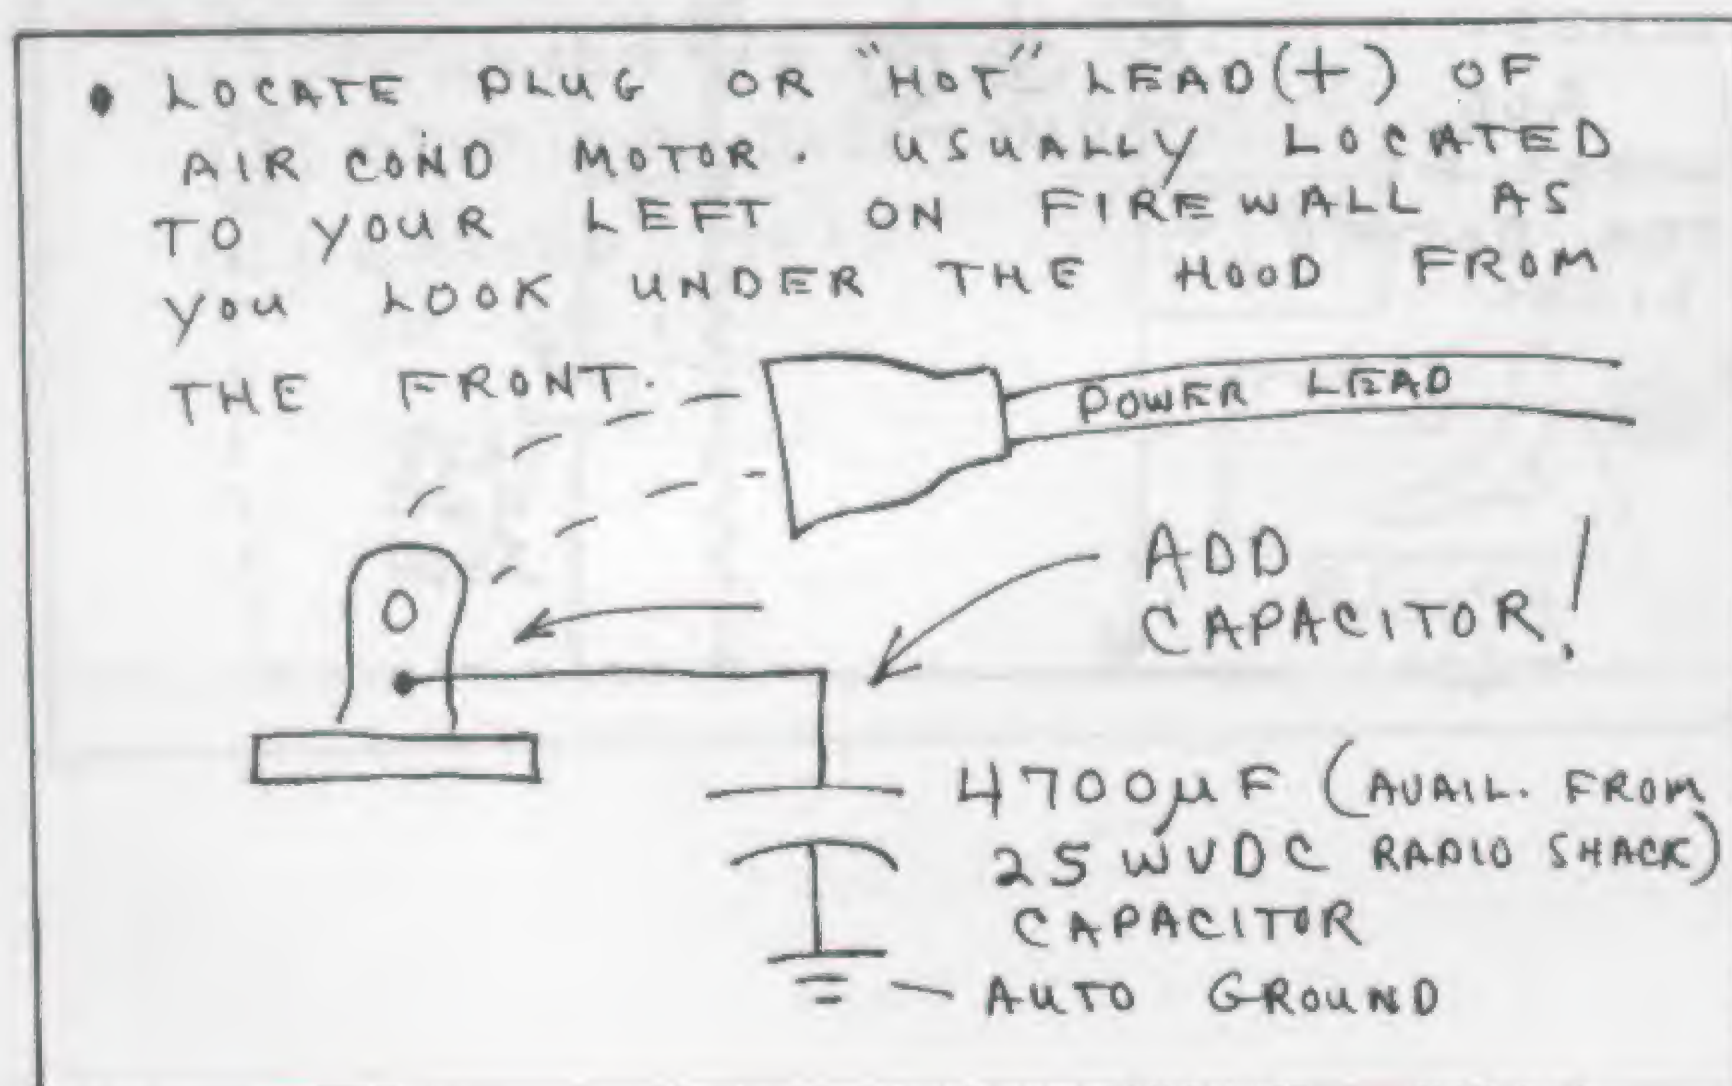 • LOCATE PLUG OR "HOT" LEAD(+) OF
AIR COND MOTOR. USUALLY LOCATED
TO YOUR LEFT ON FIREWALL AS
YOU LOOK UNDER THE HOOD FROM
THE FRONT.
POWER LEAD
ADD
CAPACITOR!
4700µF (AVAIL. FROM
25 WVDC RADIO SHACK)
CAPACITOR
AUTO GROUND